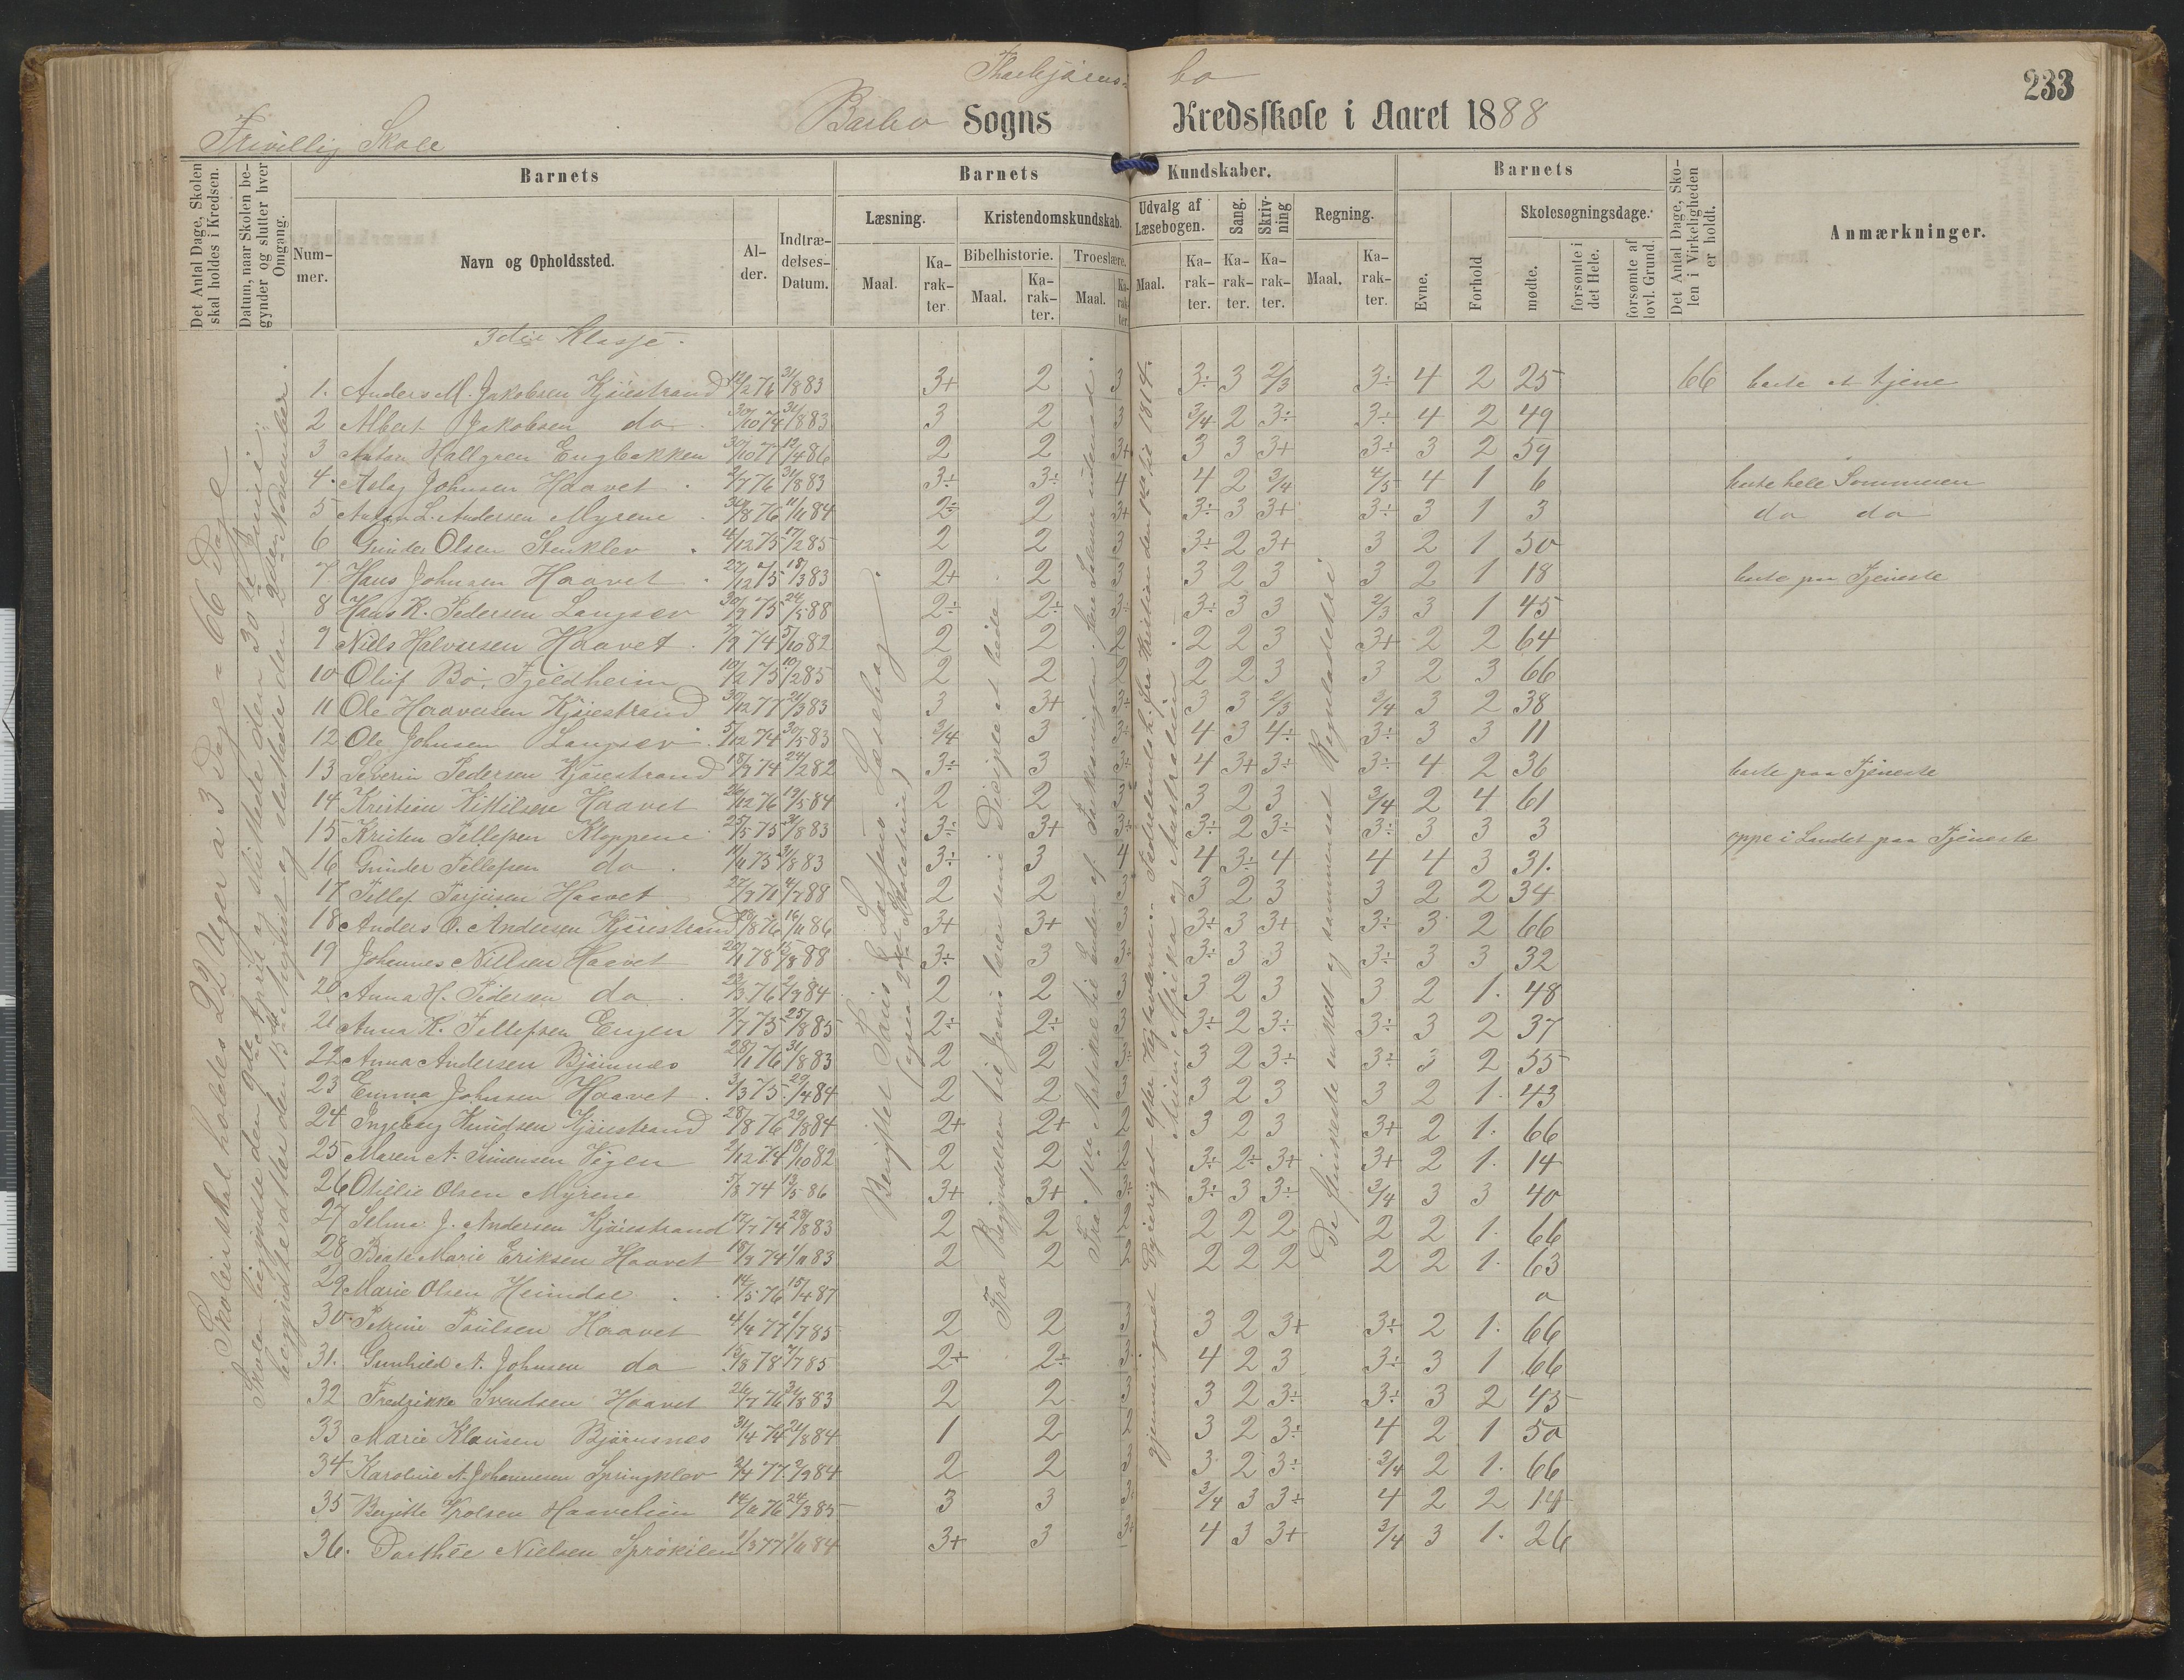 233
Barbo Sogns Kredsskole i Aaret 1888
Frivillig Skole
Det Antal Dage, Skolen skal holdes i Kredsen.
Datum, naar Skolen begynder og slutter hver Omgang.
Barnets
Nummer.
Navn og Opholdssted.
Alder.
Indtrædelses-Datum.
Barnets Kundskaber.
Læsning.
Maal.
Karakter
Kristendomskundskab.
Bibelhistorie.
Maal.
Karakter.
Troeslære.
Maal.
Karakter
Udvalg af Læsebogen.
Maal.
Karakter.
Sang.
Karakter.
Skrivning
Karakter.
Regning.
Maal.
Karakter.
Barnets
Evne.
Forhold
Skolesøgningsdage.
mødte.
forsømte i det Hele.
forsømte af lovl. Grund.
Det Antal Dage, Skolen i Virkeligheden er holdt.
Anmærkninger.
3die Klasse.
1. Anders M. Jakobsen Kjøiestrand 12/2 76 31/8 83 3+ 2 3 3÷ 3 2/3 3÷ 4 2 25 66 borte at tjene
2 Albert Jakobsen do 30/10 74 31/8 83 3 2 3 3/4 2 3÷ 3÷ 4 2 49
3 Anton Hallgren Engbakken 30/10 77 12/4 86 2 2 3+ 3 3 3+ 3÷ 3 2 59
4. Aslag Johnsen Haavet 2/7 76 31/8 83 3÷ 3÷ 4 4 2 3/4 4/5 4 1 6 borte hele Sommeren
5 Anton L. Andersen Myrene 30/8 76 11/11 84 2÷ 2 3+ 3÷ 3 3+ 3÷ 3 1 3 do do
6 Gunder Olsen Stenklev 4/12 75 17/2 85 2 2 3 3÷ 2 3+ 3 2 1 50
7. Hans Johnsen Haavet 27/12 75 18/3 83 2+ 2 3 3 2 3 3 2 1 18 borte paa Tjeneste
8 Hans K. Pedersen Langsev 30/9 75 24/5 88 2÷ 2÷ 3÷ 3÷ 3 3 2/3 3 1 45
9 Niels Halvorsen Haavet 2/9 74 5/10 82 2 2 2 2 2 3 3+ 2 2 64
10 Oluf Bo. Fjeldheim 10/2 75 10/2 85 2 2 2 2 2 3 3 2 3 66
11 Ole Haaversen Kjøiestrand 30/12 77 21/3 83 3 3+ 3÷ 3 3 2/3 3/4 3 2 38
12 Ole Johnsen Langsev 5/12 74 30/5 83 3/4 3 3÷ 4 3 4÷ 3÷ 3 3 11
13 Severin Pedersen Kjøiestrand 18/9 74 24/2 82 3÷ 3 3÷ 4 3+ 3÷ 3÷ 4 2 36 borte paa Tjeneste
14 Kristian Kittilsen Haavet 26/12 76 19/5 84 2 2 3 3 2 3 3/4 2 4 61
15 Kristen Tellefsen Kloppene 25/5 75 31/8 83 3÷ 3+ 3÷ 3÷ 2 3÷ 3÷ 3 3 3 oppe i Landet paa Tjeneste
16 Gunder Tellefsen do 11/11 75 31/8 83 3÷ 3 4 4 3÷ 4 4 4 3 31.
17 Tellef Terjusen Haavet 27/9 71 4/7 88 2 2 3 3 2 3 3 2 2 34
18 Anders O. Andersen Kjøiestrand 28/8 76 16/11 86 3+ 3+ 3 3÷ 3 3+ 3÷ 3 2 66
19 Johannes Nilsen Haavet 20/1 78 15/8 88 3÷ 3 3÷ 3÷ 3 3 3÷ 3 3 32
20 Anna H. Pedersen do 23/3 76 2/9 84 2 2 3 3 2 3 3 2 1. 48
21 Anna K. Tellefsen Engen 2/7 75 25/8 85 2÷ 2÷ 3 3÷ 2 3÷ 3÷ 3 2 37
22 Anna Andersen Bjørnnes 28/1 76 31/8 83 2 2 3÷ 3 2 3÷ 3÷ 3 2 55
23 Emma Johnsen Haavet 3/3 75 29/4 84 2 2 3 3 2 3 3 2 1. 43
24 Ingeborg Knudsen Kjøiestrand 28/8 76 29/8 84 2+ 2+ 2 3 2 3 3+ 2 1. 66
25 Maren A. Simensen Vigen 2/12 74 18/10 82 2 2 2 3÷ 2÷ 3+ 3+ 2 1. 14
26 Otielie Olsen Myrene 5/8 74 13/5 86 3+ 3+ 3÷ 3÷ 3 3÷ 3/4 3 3 40
27 Selma J. Andersen Kjøiestrand 17/7 74 28/8 83 2 2 2 2 2 2 2 2 1. 66
28 Beate Marie Eriksen Haavet 18/9 74 1/11 83 2 2 2 2 2 2 2 2 1. 63
29 Marie Olsen Heimdal 14/5 76 15/4 87 0
30 Petrine Paulsen Haavet 4/9 77 1/7 85 2 2 3 3 2 3+ 3÷ 2 1. 66
31. Gunhild A. Johnsen do 15/8 78 7/7 85 2÷ 2÷ 3 4 2 3 3÷ 3 1 66
32 Fredrikke Svendsen Haavet 26/7 76 31/8 83 2 2 3 3 2 3÷ 3÷ 3 2 45
33 Marie Klausen Bjørnnes 31/4 74 21/8 84 1 2 2 3 2 3÷ 4 2 1 50
34 Karoline A. Johannesen Springklev 2/4 77 2/9 84 2 2 3 3 2 3÷ 3/4 2 1. 66
35 Bergitte Trolsen Haavelien 14/11 76 24/3 85 3 3 3÷ 3/4 3 3÷ 4 2 2 14
36. Dorthée Nielsen Sprøkilen 1/3 77 1/11 84 3+ 3 3÷ 4 3 3+ 3/4 3 1. 26
Skolen skal holdes 22 Uger a 3 Dage = 66 Dage